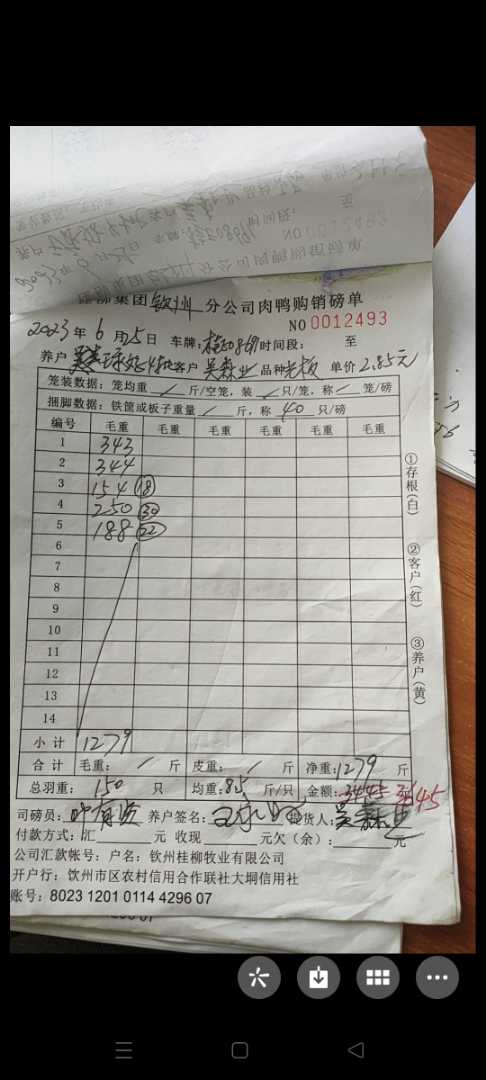 集团钦州分公司肉鸭购销磅单
NO 0012493
2023年6月15日 车牌: 时间段: 至
养户 客户 吴森业 品种 老板 单价 2.85元
笼装数据：笼均重 / 斤/空笼，装 / 只/笼，称 / 笼/磅
捆脚数据：铁筐或板子重量 / 斤，称 40 只/磅
编号 毛重 毛重 毛重 毛重 毛重
1 343
2 344
3 154 (18)
4 250 (30)
5 188 (22)
6
7
8
9
10
11
12
13
14
小计 1279
合计 毛重： / 斤 皮重： / 斤 净重：1279 斤
总羽重： 150 只 均重：8.5 斤/只 金额：3445 3645
司磅员： 养户签名： 提货人：吴森业
付款方式：汇 元 收现 元欠（余）： 元
公司汇款帐号：户名：钦州桂柳牧业有限公司
开户行：钦州市区农村信用合作联社大垌信用社
账号：8023 1201 0114 4296 07
①存根(白)
②客户(红)
③养户(黄)